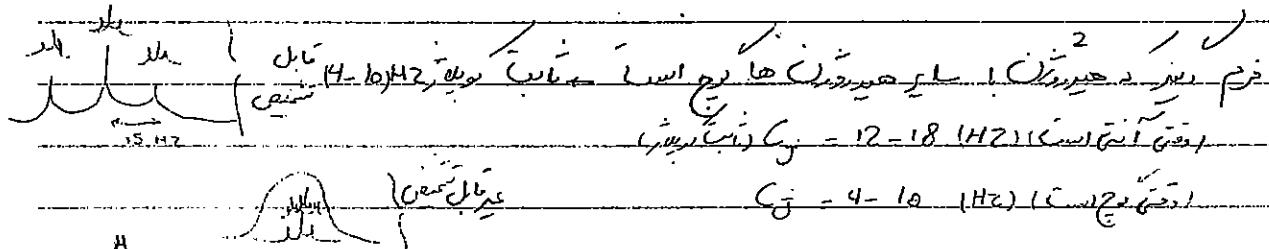 فرم دیگر که هیدروژن 2 با سایر هیدروژن ها گوچ است ← ثابت کوپلاژ (4-10)HZ قابل تشخیص
15 HZ
(وقتی آنتی است) (HZ) 12-18 = J (ثابت کوپلاژ)
(وقتی گوچ است) (HZ) 4-10 = J
غیر قابل تشخیص
H